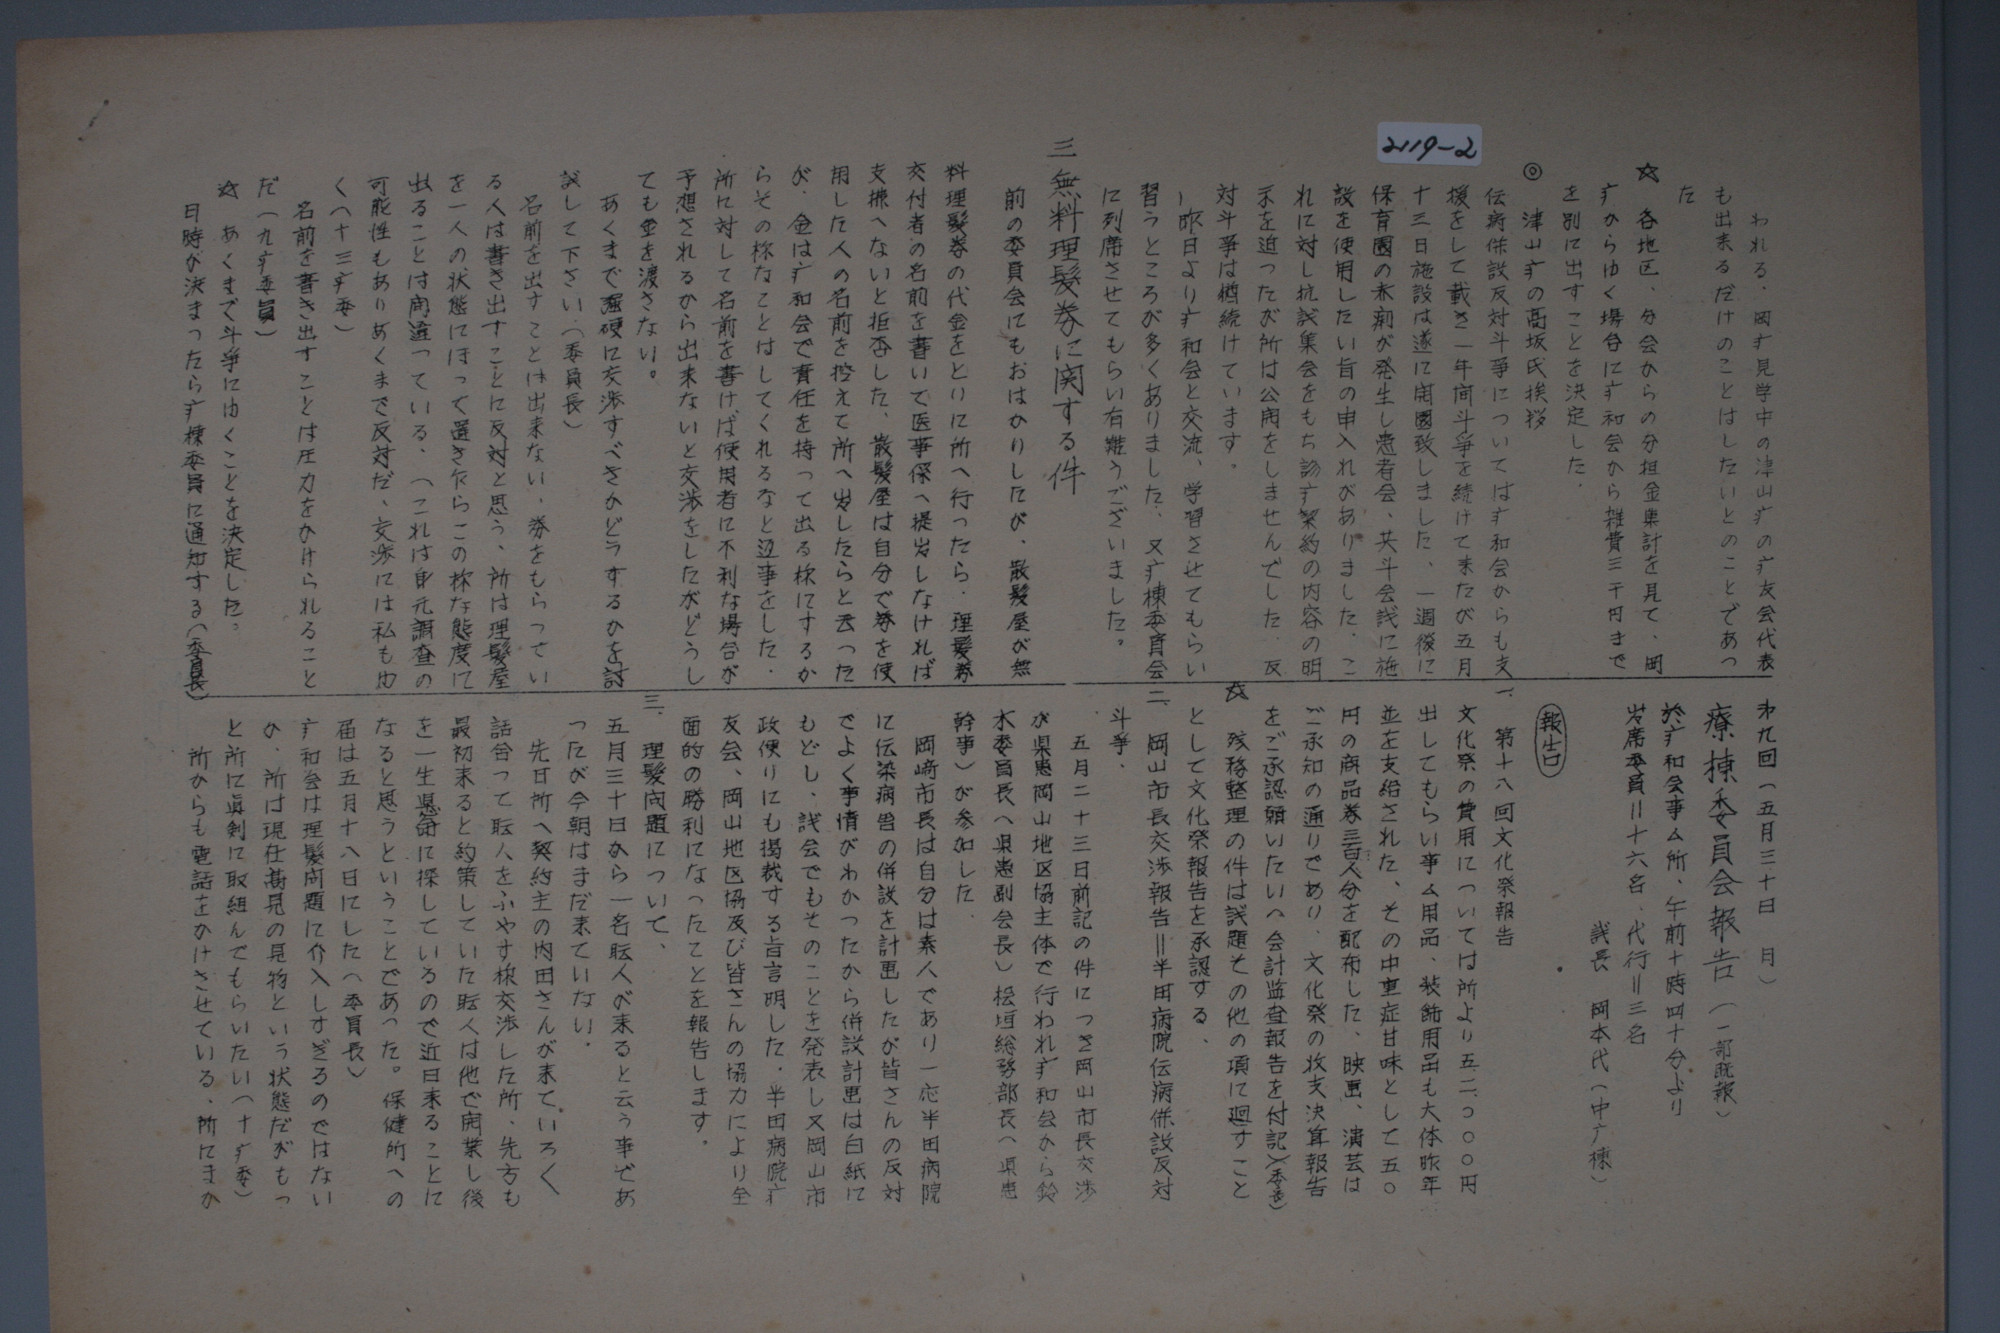 2119-2
われる、岡疒見学中の津山疒の疒友会代表
も出来るだけのことはしたいとのことであっ
た
☆ 各地区、分会からの分担金集計を見て、岡
疒からゆく場合に疒和会から雑費三千円まで
を別に出すことを決定した.
◎ 津山疒の高坂氏挨拶
伝病併設反対斗爭については疒和会からも支
援をして載き一年间斗爭を続けて来たが五月
十三日施設は遂に用園致しました、一週後に
保育園の赤痢が発生し患者会、共斗会議に施
設を使用したい旨の申入れがありました、こ
れに対し抗議集会をもち診疒契約の内容の明
示を迫ったが所は公用をしませんでした、反
対斗爭は継続けています。
昨日より疒和会と交流、学習させてもらい
習うところが多くありました、又疒棟委員会
に列席させてもらい有難うございました。
三 無料理髪券に関する件
前の委員会にもおはかりしたが、散髪屋が無
料理髪券の代金をとりに所へ行ったら、理髪券
交付者の名前を書いて医事係へ提出しなければ
支擴へないと拒否した、散髪屋は自分で券を使
用した人の名前を控えて所へ出したらと云った
が、金は疒和会で責任を持って出る様にするか
らその様なことはしてくれるなと返事をした.
所に対して名前を書けば使用者に不利な場合が
予想されるから出来ないと交渉をしたがどうし
ても金を渡さない。
あくまで强硬に交渉すべきかどうするかを討
議して下さい(委員長)
名前を出すことは出来ない、券をもらってい
る人は書き出すことに反対と思う、所は理髪屋
を一人の状態にほって置き乍らこの様な態度に
出ることは间違っている、(これは身元調査の
可能性もありあくまで反対だ、交渉には私も也
く(十三疒委)
名前を書き出すことは圧力をかけられること
だ(九疒委員)
☆ あくまで斗爭にゆくことを決定した。
日時が決まったら疒棟委員に通知する(委員長)
才九回(五月三十日 月)
療棟委員会報告(一部既報)
於疒和会事ム所、午前十時四十分より
出席委員=十六名、代行=三名
議長 岡本代(中疒棟)
報告
一、第十八回文化祭報告
文化祭の費用については所より五二〇〇〇円
出してもらい事ム用品、装飾用品も大体昨年
並を支給された、その中重症甘味として五〇
円の商品券三百人分を配布した、映画、演芸は
ご承知の通りであり、文化祭の收支決算報告
をご承認願いたい(会計監査報告を付記)(委長)
☆ 残務整理の件は議題その他の項に廻すこと
として文化祭報告を承認する、
二、岡山市長交渉報告=半田病院伝病併設反対
斗爭、
五月二十三日前記の件につき岡山市長交渉
が県患岡山地区協主体で行われ疒和会から鈴
木委員長(県患副会長)桧垣総務部長(県患
幹事)が参加した.
岡﨑市長は自分は素人であり一応半田病院
に伝染病舎の併設を計画したが皆さんの反対
でよく事情がわかったから併設計画は白紙に
もどし、議会でもそのことを発表し又岡山市
政便りにも掲裁する旨言明した、半田病院疒
友会、岡山地区協及び皆さんの協力により全
面的の勝利になったことを報告します。
三、理髪问題について、
五月三十日から一名転人が来ると云う事であ
ったが今朝はまだ来ていない.
先日所へ契約主の内田さんが来ていろく
話合って転人をふやす様交渉した所、先方も
最初来ると約策していた転人は他で開業し後
を一生県命に探しているので近日来ることに
なると思うということであった。保健所への
届は五月十八日にした(委員長)
疒和会は理髪问題に介入しすぎるのではない
か、所は現在髙見の見物という状態だがもっ
と所に眞剣に取組んでもらいたい(十疒委)
所からも電話をかけさせている、所にまか